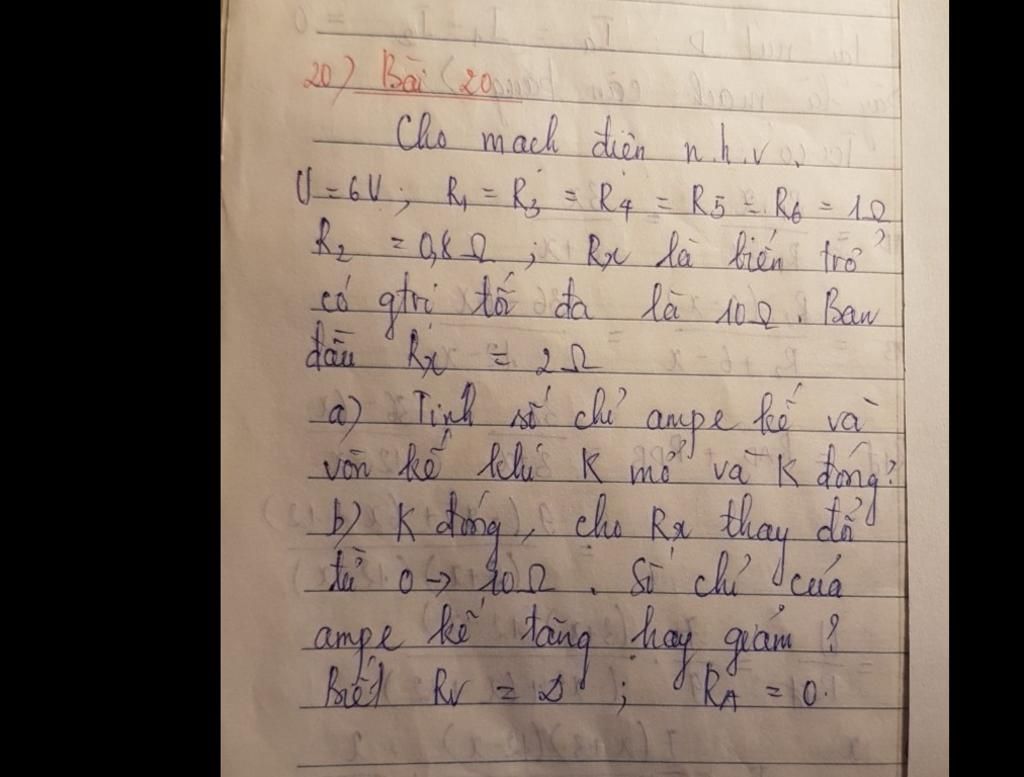 20) Bài (20
Cho mạch điện n.h.v.
U = 6V; R1 = R3 = R4 = R5 = R6 = 1Ω
R2 = 0,8Ω ; Rx là biến trở
có gtrị tối đa là 10Ω. Ban
đầu Rx = 2Ω
a) Tính số chỉ ampe kế và
vôn kế khi K mở và K đóng?
b) K đóng, cho Rx thay đổi
từ 0 → 10Ω. Số chỉ của
ampe kế tăng hay giảm?
Biết Rv = ∞ ; RA = 0.